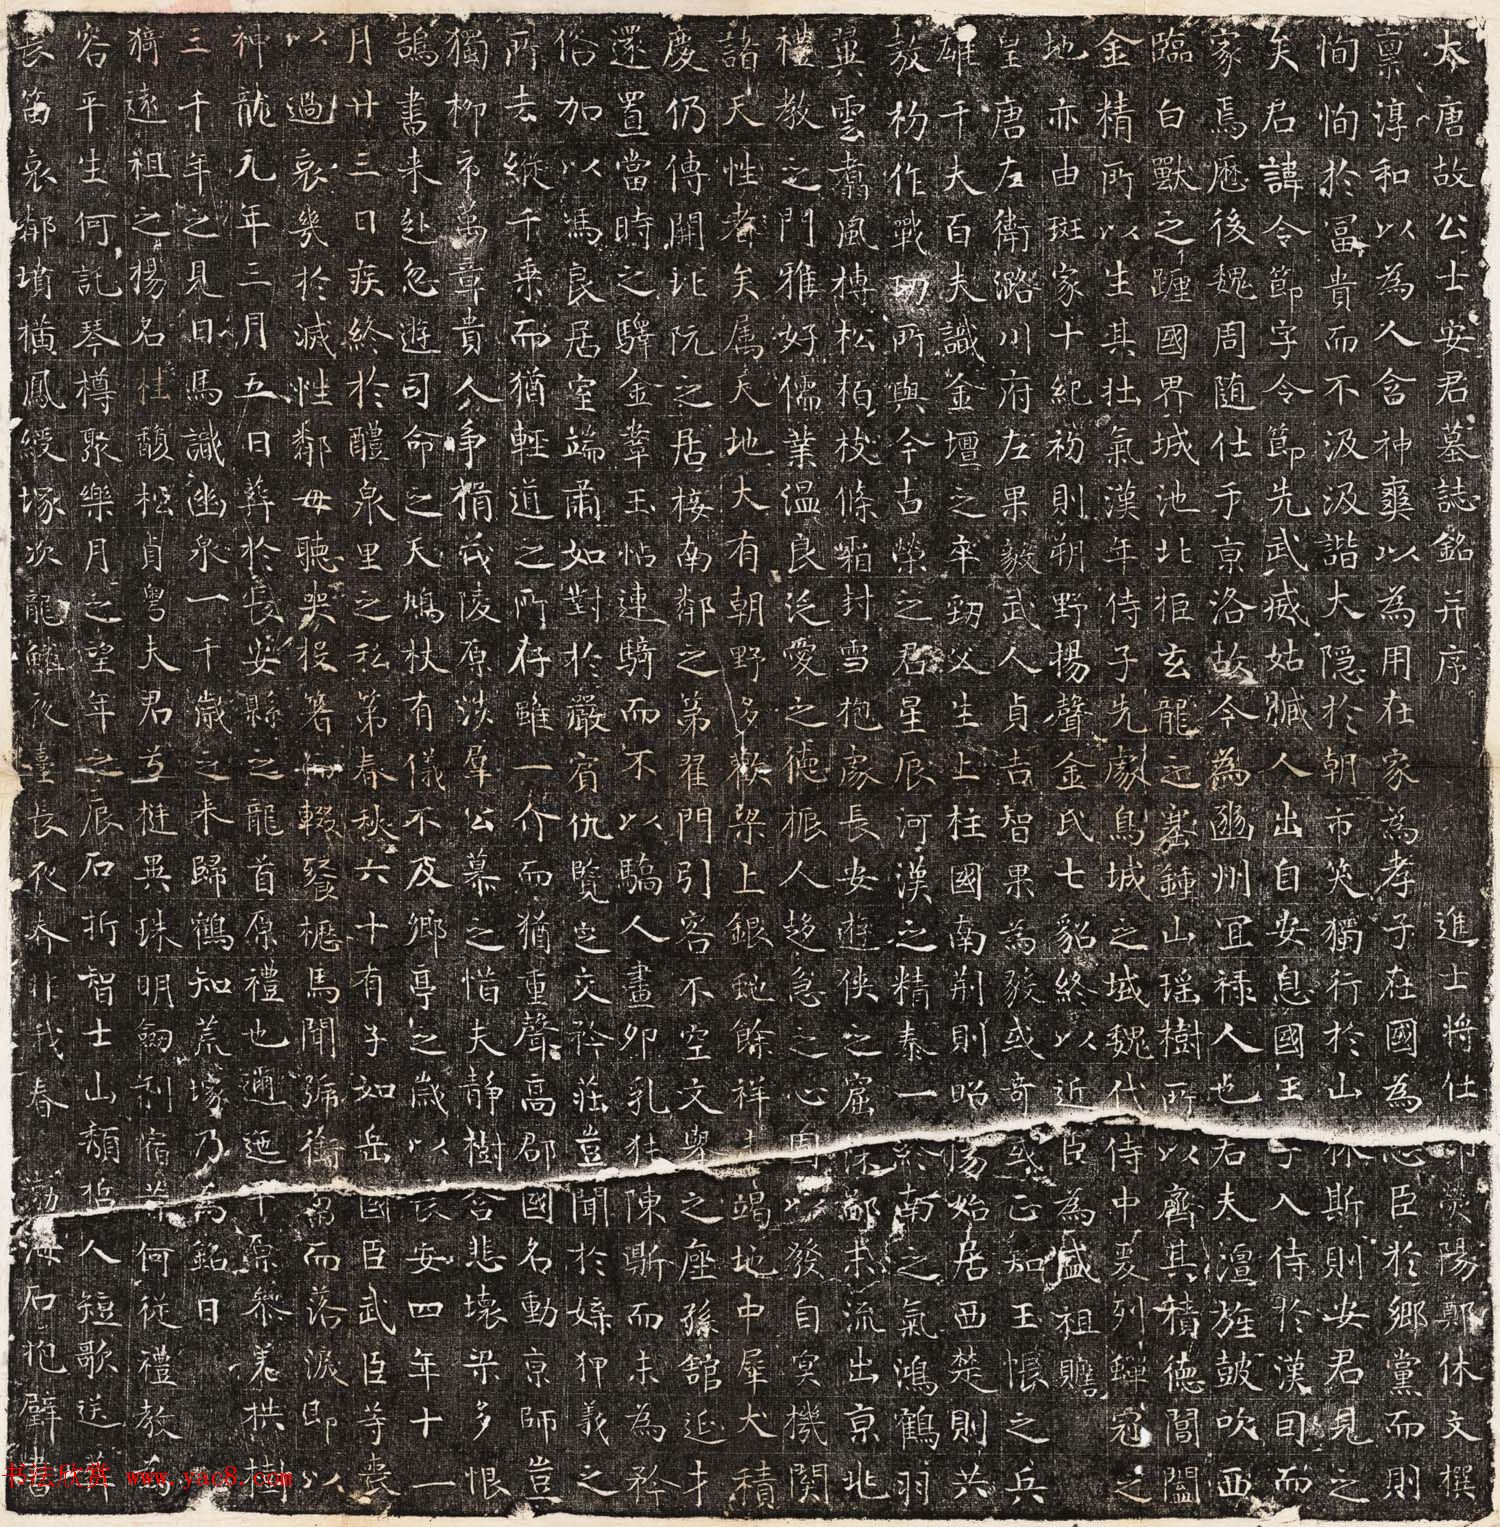 大唐故公士安君墓誌銘并序 進士將仕郎滎陽鄭休文撰
稟淳和以為人含神爽以為用在家為孝子在國為忠臣於鄉黨而則
恂恂於富貴而不汲汲諧大隱於朝市笑獨行於山林斯則安君見之
矣君諱令節字令節先武威姑臧人出自安息國王子入侍於漢因而
家焉歷後魏周隨仕于京洛故今為豳州宜祿人也若夫澶旌鼓吹西
臨白獸之躔國界城池北拒玄龍之塞鍾山瑤樹所以齊其積德閶闔
金精所以生其壯氣漢年侍子先處鳥城之域魏代侍中爰列蟬冠之
地亦由班家十紀初則朔野揚聲金氏七貂終以近臣為盛祖贍
皇唐左衛潞川府左果毅武人貞吉智果為毅或奇或正知王帳之兵
雄千夫百夫識金壇之卒勁父生上柱國南荊則昭陽始居西楚則共
敖初作戰功所與今古榮之君星辰河漢之精泰一終南之氣鴻鶴羽
翼雲翥風摶松栢枝條霜封雪抱處長安遊俠之窟深鄙末流出京兆
禮教之門雅好儒業溫良泛愛之德振人趍急之心固以發自冥機關
諸天性者矣屬天地大有朝野多歡梁上銀虵餘祥未竭地中犀犬積
慶仍傳開北阮之居接南鄰之第翟門引客不空文舉之座孫館延才
還置當時之驛金牽玉怗連騎而不以驕人畫卯乳狌陳斯而未為矜
俗加以馮良居室端肅如對於嚴賓仇覽定交矜莊豈聞於媟狎義之
所去縱千乘而猶輕道之所存雖一介而猶重聲高郡國名動京師豈
獨柳市萬章貴人爭揖茂陵原涉群公慕之惜夫靜樹含悲壞梁多恨
鵠書來赴忽遊司命之天鳩杖有儀不及鄉亭之歲以長安四年十一
月廿三日疾終於醴泉里之私第春秋六十有子如岳國臣武臣等喪
以過哀幾於滅性鄰母聽哭投箸而輟餐櫪馬聞號銜芻而落淚即以
神龍元年三月五日葬於長安縣之龍首原禮也邐迤平原參差拱樹
三千年之見日馬識幽泉一千歲之來歸鶴知荒塚乃為銘曰
猗遠祖之揚名桂馥松貞粵夫君挺異珠明劒利宿昔何從禮教為
容平生何託琴樽聚樂月之望年之辰石折智士山頹哲人短歌送葬
長笛哀鄰墳橫鳳綬塚次龍鱗夜臺長夜春非我春 渤海石抱璧書
書法欣赏 www.yac8.com